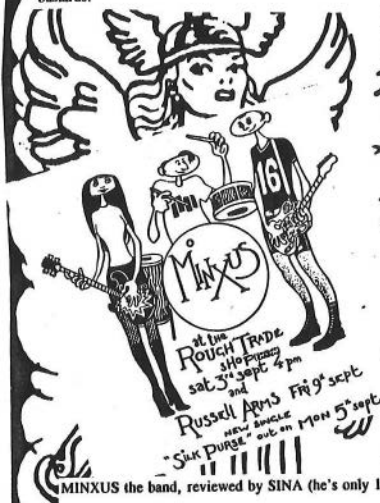 16
MINXUS
at the
ROUGH TRADE
SHOP
sat 3rd sept 4pm
and
RUSSELL ARMS FRI 9th sept
NEW SINGLE
"SILK PURSE" out on MON 5th sept
MINXUS the band, reviewed by SINA (he's only 1